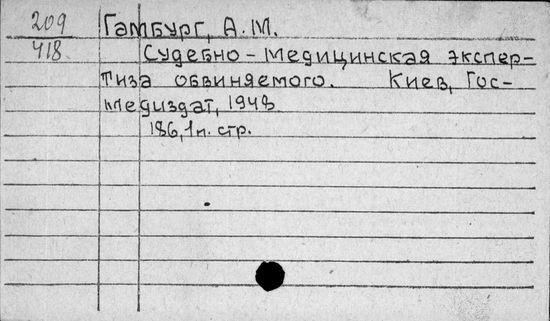 209 Гамбург, А.М.
418 Судебно-медицинская экспер-
тиза обвиняемого. Киев, Гос-
медиздат, 1948
186, 1 п. стр.